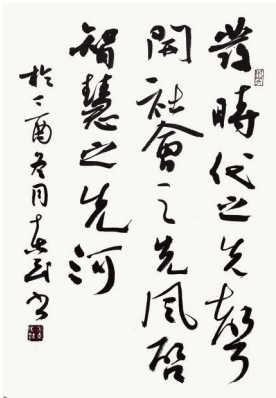 發時代之先聲
開社會之先風啓
智慧之先河
於丁酉冬月書